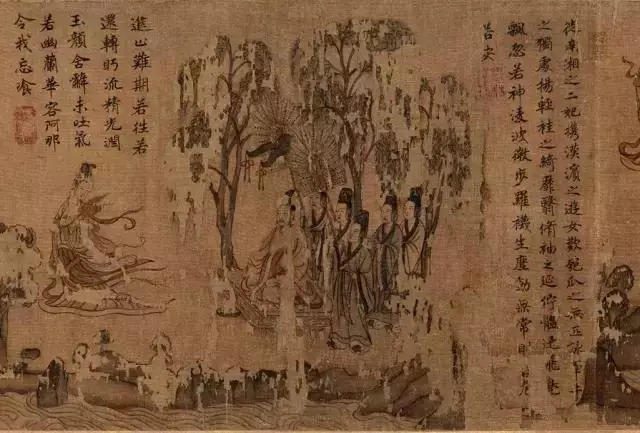 從南湘之二妃攜漢濱之遊女歎匏瓜之無匹詠
之獨處揚輕袿之綺靡翳脩袖之延佇體迅飛鳧
飄忽若神凌波微步羅襪生塵動無常則
若安
進止難期若往若
還轉眄流精光潤
玉顏含辭未吐氣
若幽蘭華容阿那
令我忘飡